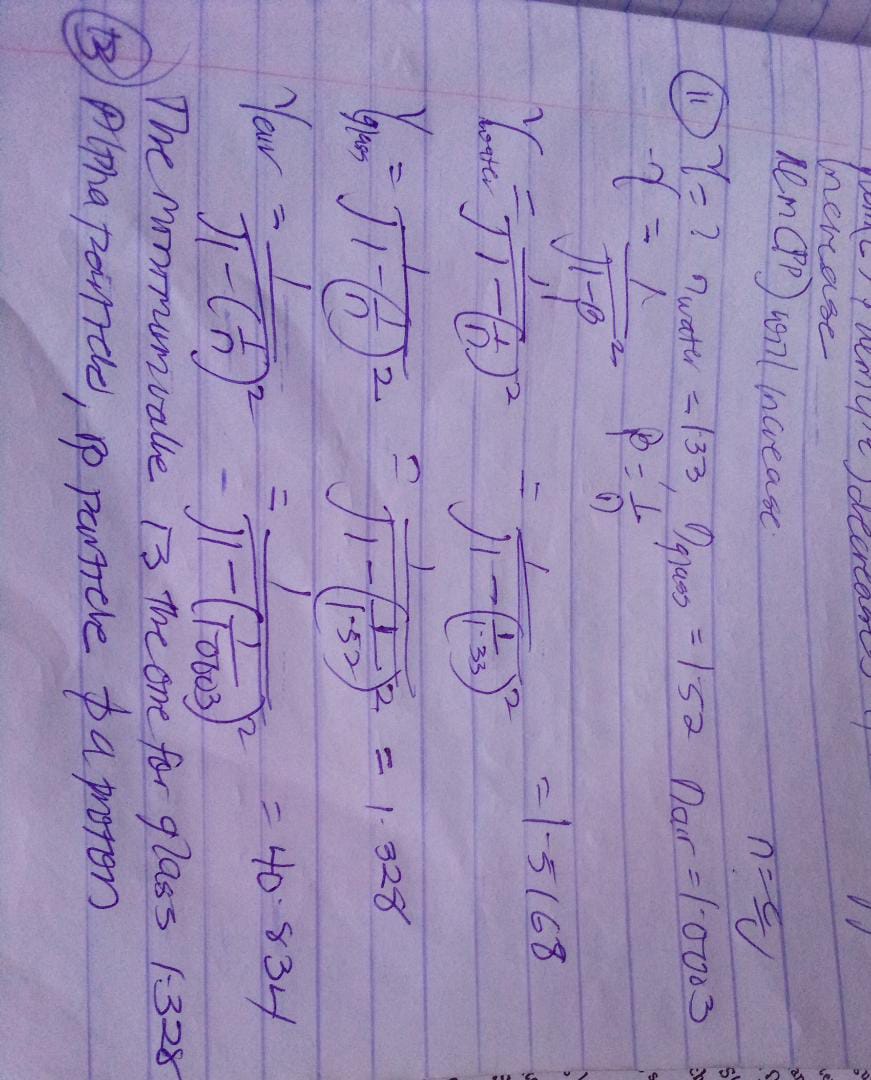 increase
will increase
n = c/v
(11) γ = ? n water = 1.33, n glass = 1.52 n air = 1.0003
γ = 1/√1-β² β = 1/n
γ water = 1/√1-(1/n)² = 1/√1-(1/1.33)² = 1.5168
γ glass = 1/√1-(1/n)² = 1/√1-(1/1.52)² = 1.328
γ air = 1/√1-(1/n)² = 1/√1-(1/1.0003)² = 40.834
The minimum value is the one for glass 1.328
Alpha particle, β particle & a proton